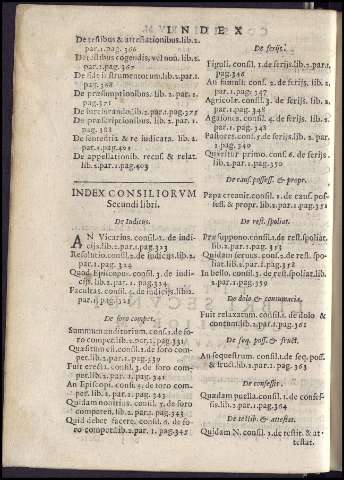 INDEX
De testibus & attestationibus.lib.2.
par.1.pag.366
De testibus cogendis, vel non. lib.2.
par.1.pag.367
De fide instrumentorum.lib.2.par.1.
pag.368
De præsumptionibus. lib. 2. par. 1.
pag.371
De iureiurando.lib.2.par.1.pag.375
De præscriptionibus. lib. 2. par. 1.
pag. 388
De sententia & re iudicata. lib. 2.
par.1.pag.401
De appellationib. recus. & relat.
lib.2.par.1.pag.403
INDEX CONSILIORVM
Secundi libri.
De Iudiciis.
AN Vicarius. consil.1. de iudi-
ciis.lib.2.par.1.pag.323
Resolutio.consil.2.de iudiciis.lib.2.
par.1.pag.324
Quod Episcopus. consil. 3. de iudi-
ciis. lib.2.par.1.pag.324
Facultas. consil. 4. de iudiciis.lib.2.
par.1.pag.325
De foro compet.
Summum auditorium. consi.1.de fo-
ro compet.lib.2.par.1.pag.331
Quæsitum est.consil.2.de foro com-
pet.lib.2.par.1.pag.339
Fuit erecta. consil. 3. de foro com-
pet.lib.2.par.1.pag.341
An Episcopi. consil. 4. de foro com-
pet.lib.2.par.1.pag.343
Quidam nobilis. consil. 5. de foro
competen.lib.2.par.1.pag.343
Quid debet facere. consil. 6. de fo-
ro compet.lib.2.par.1.pag.345
De feriis.
Figuli. consil.1.de feriis.lib.2.par.1.
pag.346
An famuli. consi.2.de feriis.lib.2.
par.1.pag.347
Agricolæ. consil. 3. de feriis. lib.2.
par.1.pag.348
Agasones. consil. 4. de feriis. lib.2.
par.1.pag.348
Pastores.consil.5.de feriis.lib.2. par.
1.pag.349
Quæritur primo. conf.6. de feriis.
lib.2.par.1.pag.350
De caus. possess. & propr.
Papa creauit.consil.1. de caus. pos-
sess. & propr.lib.2.par.1.pag.351
De rest. spoliat.
Præsuppono.consil.1.de rest.spoliat.
lib.2.par.1.pag.351
Quidam seruus.consil.2.de rest.spo-
liat.lib.2.par.1.pag.352
In bello. consil.3.de rest.spoliat.lib.
2.par.1.pag.359
De dolo & contumacia.
Fuit relaxatum. consil.1. de dolo &
contum.lib.2.par.1.pag.361
De seq. poss. & fruct.
An sequestrum. consil.1.de seq. poss.
& fruct.lib.2.par.1.pag. 363
De confessis.
Quædam puella.consil.1.de confes-
sis.lib.2.par.1.pag.364
De testib. & attestat.
Quidam N. consil.1.de testit. & at-
testat.